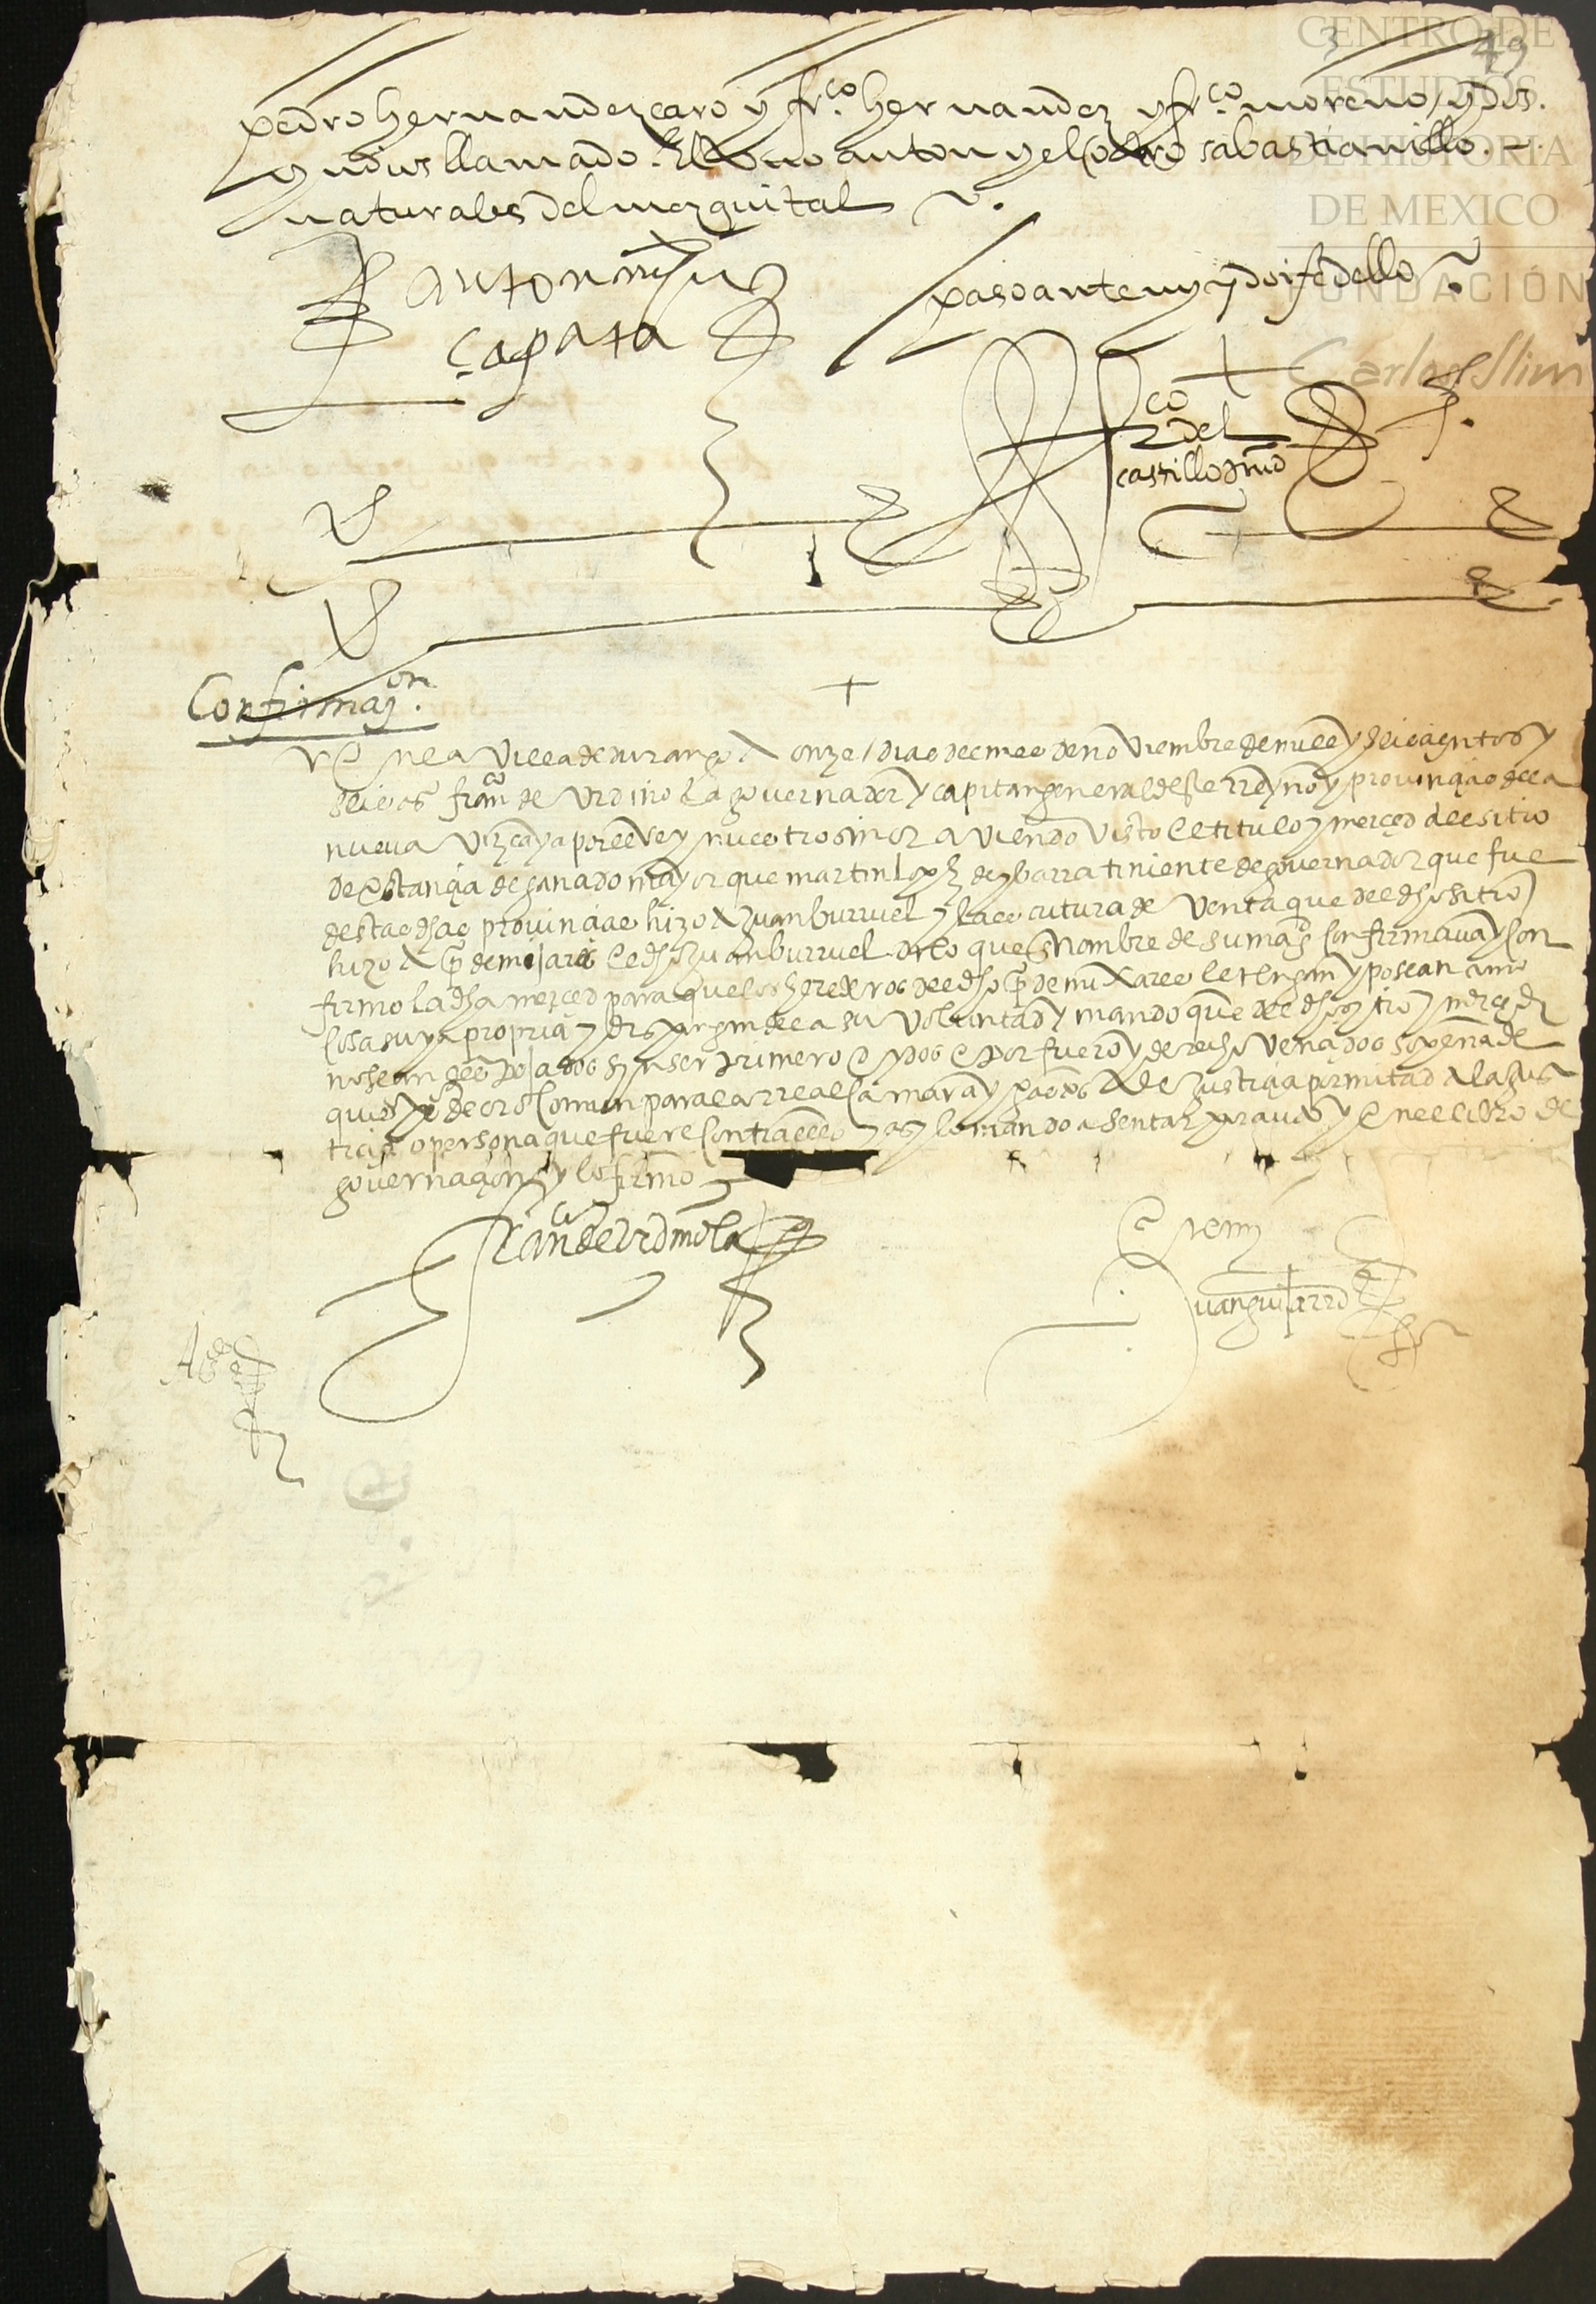 49
CENTRO DE
ESTUDIOS
DE HISTORIA
DE MEXICO
FUNDACIÓN
Carlos Slim
pedro hernandez caro y fr.co hernandez y fr.co moreno / y dos
yndios llamado. El uno anton y el otro sabastianillo. -
naturales del mezquital
anton mrn
çapata
paso ante my y doi fe dello
fco del
castillo
Confirmaçion.
En la villa de durango A onze / dias del mes de noviembre de mill y seiscientos y
seis as franco de Urdinola governador y capitan general deste rreyno y provinçias de la
nueva Vizcaya por el rey nuestro senor aviendo visto el titulo y merçed del sitio
de estançia de ganado mayor que martin lopez de ybarra tiniente de governador que fue
destas dhas provinçias hizo A Juan burruel y la escritura de Venta que del dho sitio
hizo A po de mijares el dho Juan burruel dixo que en nombre de su magd confirmava y con
firmo la dha merçed para que los herederos del dho po de mixares le tengan y posean como
cosa suya propria y dispongan della a su voluntad y mando que del dho sitio y merçed
no sean despojados sin ser primero oydos e por fuero y derecho Vençidos so pena de
quios pos de oro comun para la rreal camara y gastos de Justiçia por mitad a la jus
ticia o persona que fuere contra ello y asy lo mando asentar y en el libro de
governaçion y lo firmo
franco de urdinola
Ante my
Juan guijarro